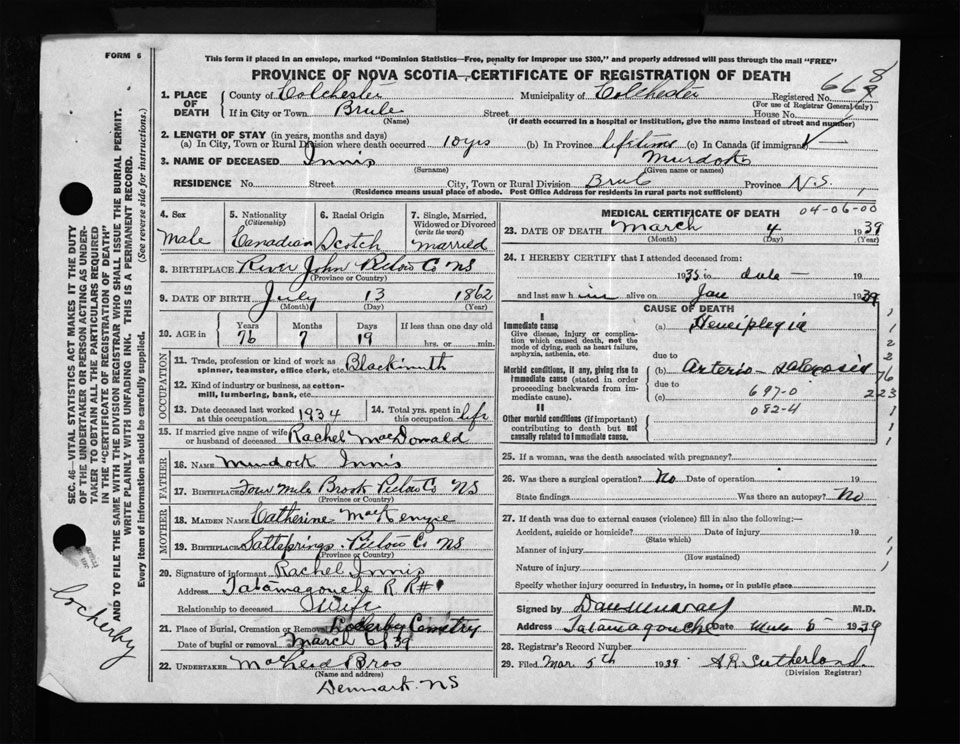 FORM 6
This form if placed in an envelope, marked "Dominion Statistics—Free, penalty for improper use $300," and properly addressed will pass through the mail "FREE"
PROVINCE OF NOVA SCOTIA—CERTIFICATE OF REGISTRATION OF DEATH
668
1. PLACE OF DEATH County of Colchester Municipality of Colchester Registered No.
(For use of Registrar General only)
If in City or Town Brule Street House No.
(Name) (If death occurred in a hospital or institution, give the name instead of street and number)
2. LENGTH OF STAY (in years, months and days)
(a) In City, Town or Rural Division where death occurred 10 yrs (b) In Province lifetime (c) In Canada (if immigrant)
3. NAME OF DECEASED Innis Murdock
(Surname) (Given name or names)
RESIDENCE No. Street City, Town or Rural Division Brule Province N.S.
(Residence means usual place of abode. Post Office Address for residents in rural parts not sufficient)
4. Sex 5. Nationality (Citizenship) 6. Racial Origin 7. Single, Married, Widowed or Divorced (write the word)
Male Canadian Scotch Married
8. BIRTHPLACE River John Pictou Co NS
(Province or Country)
9. DATE OF BIRTH July 13 1862
(Month) (Day) (Year)
10. AGE in Years Months Days If less than one day old
76 7 19 hrs. or min.
OCCUPATION
11. Trade, profession or kind of work as spinner, teamster, office clerk, etc. Blacksmith
12. Kind of industry or business, as cotton-mill, lumbering, bank, etc.
13. Date deceased last worked at this occupation 1934 14. Total yrs. spent in this occupation life
15. If married give name of wife or husband of deceased Rachel MacDonald
FATHER
16. NAME Murdock Innis
17. BIRTHPLACE Four Mile Brook Pictou Co NS
(Province or Country)
MOTHER
18. MAIDEN NAME Catherine MacKenzie
19. BIRTHPLACE Saltsprings Pictou Co NS
(Province or Country)
20. Signature of informant Rachel Innis
Address Tatamagouche R R #1
Relationship to deceased Wife
21. Place of Burial, Cremation or Removal Cemetry
Date of burial or removal March 6 39
22. UNDERTAKER MacLeod Bros
(Name and address)
Denmark. NS
MEDICAL CERTIFICATE OF DEATH 04-06-00
23. DATE OF DEATH March 4 1939
(Month) (Day) (Year)
24. I HEREBY CERTIFY that I attended deceased from:
1935 to date 19
and last saw him alive on Jan 1939
CAUSE OF DEATH
I
Immediate cause (a) Hemiplegia
Give disease, injury or complication which caused death, not the mode of dying, such as heart failure, asphyxia, asthenia, etc.
due to
Morbid conditions, if any, giving rise to immediate cause (stated in order proceeding backwards from immediate cause). (b) Arterio-sclerosis
due to
(c) 697-0
082-4
II
Other morbid conditions (if important) contributing to death but not causally related to immediate cause.
1
1
2
2
76
223
1
1
1
25. If a woman, was the death associated with pregnancy?
26. Was there a surgical operation? No Date of operation 19
State findings Was there an autopsy? No
27. If death was due to external causes (violence) fill in also the following:—
Accident, suicide or homicide? Date of injury 19
(State which)
Manner of injury
(How sustained)
Nature of injury
Specify whether injury occurred in industry, in home, or in public place
Signed by Dan Murray M.D.
Address Tatamagouche Date Mch 5 1939
28. Registrar's Record Number
29. Filed Mar. 5th 1939. A.R. Sutherland.
(Division Registrar)
SEC. 46—VITAL STATISTICS ACT MAKES IT THE DUTY
OF THE UNDERTAKER OR PERSON ACTING AS UNDER-
TAKER TO OBTAIN ALL THE PARTICULARS REQUIRED
IN THE "CERTIFICATE OF REGISTRATION OF DEATH"
AND TO FILE THE SAME WITH THE DIVISION REGISTRAR WHO SHALL ISSUE THE BURIAL PERMIT.
WRITE PLAINLY WITH UNFADING INK. THIS IS A PERMANENT RECORD.
Every item of Information should be carefully supplied. (See reverse side for instructions.)
Lockerby